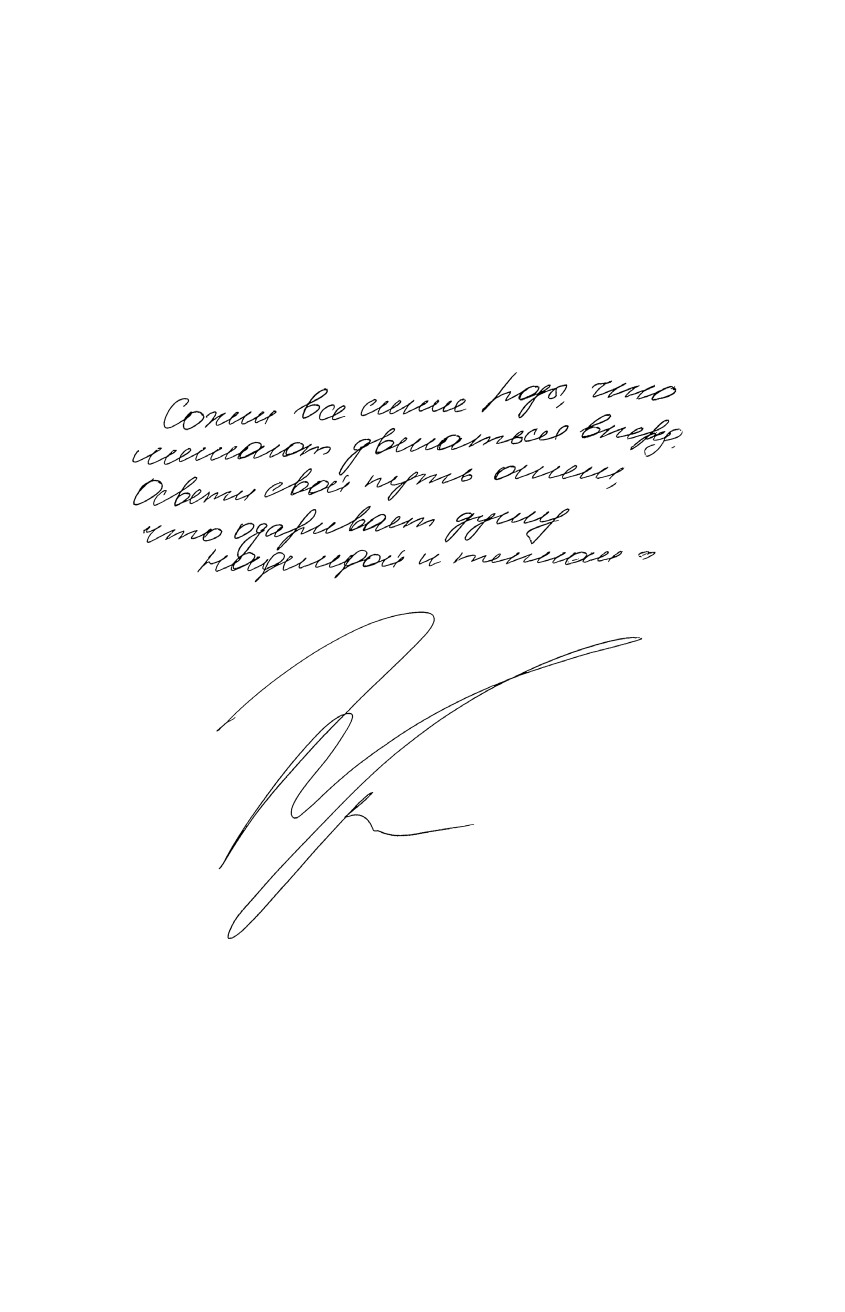 Сожги все синие розы, что
мешают двигаться вперед.
Освети свой путь огнем,
что одаривает душу
надеждой и теплом